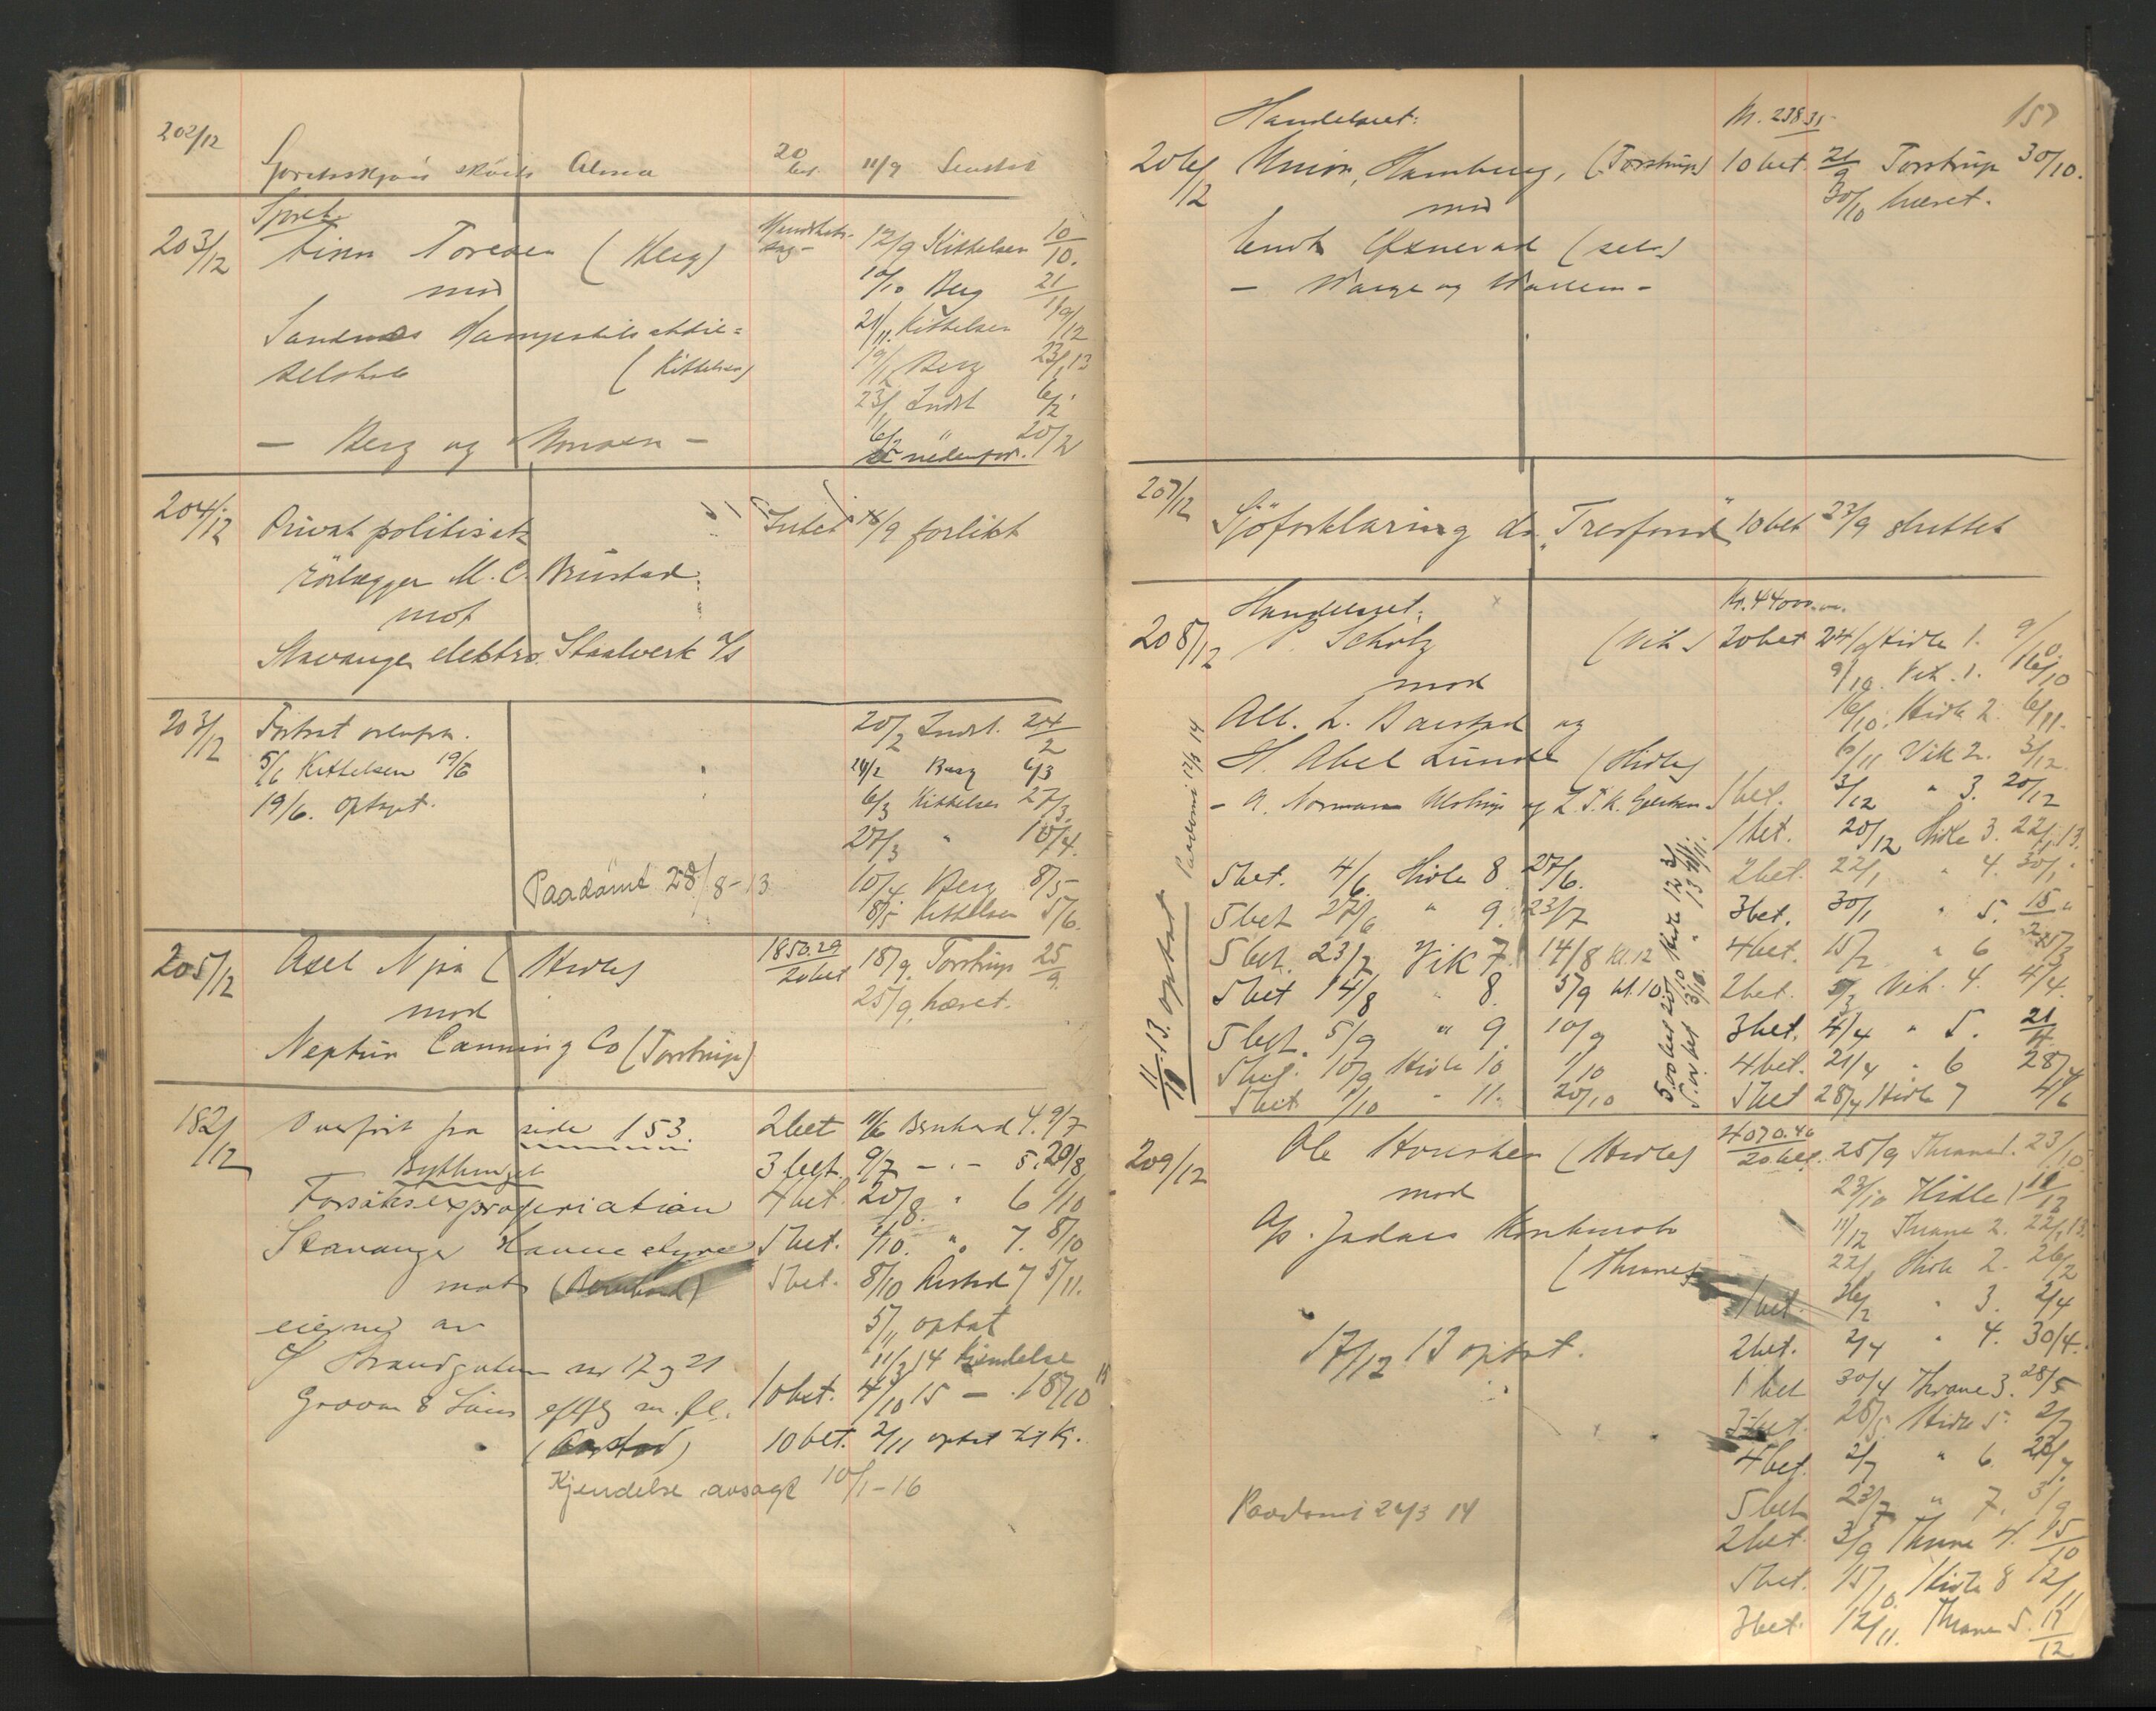 202/12
Alma 20 bet. 11/9 Sluttet
Sjøret.
203/12 Finn Toresen (Berg) 12/9 Kittelsen 10/10.
mod 10/10 Berg 21/11
Sandnes 21/11 Kittelsen 19/12
selskab (Kittelsen) 19/12 Berg 23/1 13
23/1 Indst 6/2
— Berg og — 6/2 " 20/2
se nedenfor.
204/12 Privat politisak Intet 16/9 forlikt
rörlægger M. C. Brüstad.
mot
Stavanger elektro. Staalverk A/S
203/12 Fortsat ovenfra. 20/2 Indst. 24/2
5/6 Kittelsen 19/6 24/2 Berg 6/3
19/6. Optaget. 6/3 Kittelsen 27/3
27/3 " 10/4.
Paadömt 28/8-13 10/4 Berg 8/5
8/5 Kittelsen 5/6.
205/12 Axel Njå (Hidle) 1850.29 20 bet 18/9. Torstrup 25/9
mod 25/9. hævet.
Neptun Canning Co (Torstrup)
182/12 Overført fra side 153. 2bet 11/6 Bernhard 4. 9/7
3 bet. 9/7 - " - 5. 20/8
Forsøksexpropriation 4 bet. 20/8 " 6 1/10
Stavanger Havnestyre 5 bet. 1/10. " 7. 8/10
mot (Bernhard) 5 bet. 8/10 Aarstad 7 5/11.
eierne av 5/11 optat
Strandgaten no 17 og 21 11/2 14 Kjendelse
m. fl. 10 bet. 4/10 15 — 18/10 15
(Aarstad) 10 bet. 2/11 optat til Kj.
Kjendelse avsagt 10/1-16
157
Handelsret: Kr. 238.35
206/12 Union, Hamburg, (Torstrup) 10 bet. 21/9 Torstrup 30/10.
mod 30/10 hævet.
(selv)
207/12 Sjöforklaring ds. "Tresfond" 10 bet 23/9 sluttet
Handelsret: Kr. 44000.
208/12 P. Scholz (Vik) 20 bet 24/9 Hidle 1. 9/10.
mod 9/10. Vik. 1. 16/10
Alb. L. Baastad og 16/10. Hidle 2. 6/11.
H. Abel Lunde (Hidle) 6/11 Vik 2. 3/12.
1 bet. 3/12 " 3. 20/12
1 bet. 20/12 Hidle 3. 22/1 13.
5 bet. 4/6. Hidle 8 27/6. 2 bet. 22/1 " 4. 30/1
5 bet 27/6 " 9. 23/7 3 bet. 30/1 " 5. 15/2
5 bet. 23/7 Vik 7. 14/8 Kl. 12 4 bet. 15/2 " 6
5 bet 14/8 " 8. 5/9 kl. 10 2 bet. 5/3 Vik. 4. 4/4.
5 bet. 5/9 " 9. 10/9 3 bet. 4/4 " 5. 21/4
5 bet. 10/9 Hidle 10 1/10 4 bet. 21/4 " 6 28/4
5 bet 1/10 " 11. 20/10 5 bet 28/4 Hidle 7 4/6
11/11 13. optat Paadömt 17/3 14
5.00 bet 20/10 Hidle 12 3/11.
209/12 Ole (Hidle) 4070.46 20 bet. 25/9 Thrane 1. 23/10.
mod 23/10 Hidle 1 11/12
Ap. Jadars 11/12 Thrane 2. 22/1 13.
(Thrane) 22/1 Hidle 2. 26/2
1 bet. 26/2 " 3. 2/4
17/12 13 optat. 2 bet. 2/4 " 4. 30/4.
1 bet 30/4 Thrane 3. 28/5
3 bet. 28/5. Hidle 5. 2/7
4 bet. 2/7 " 6. 23/7.
Paadömt 24/3 14 5 bet 23/7 " 7. 3/9
2 bet. 3/9 Thrane 4. 15/10
5 bet. 15/10. Hidle 8 12/11
3 bet. 12/11. Thrane 5. 17/12